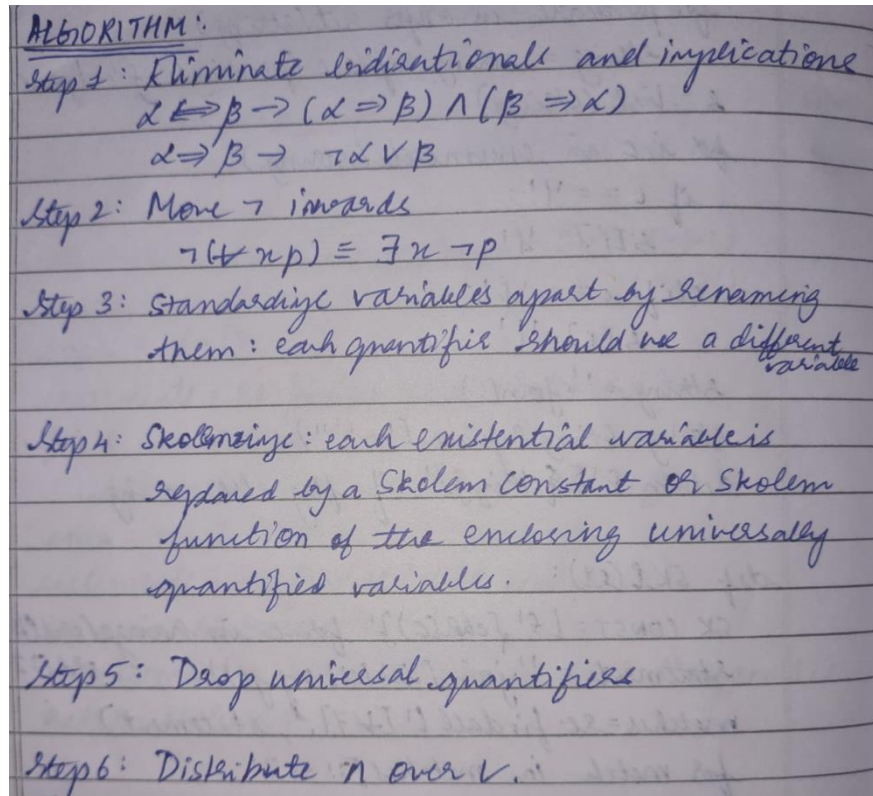 ALGORITHM:
Step 1: Eliminate bidirectionals and implications
α ⟺ β → (α ⇒ β) ∧ (β ⇒ α)
α ⇒ β → ¬α ∨ β
Step 2: Move ¬ inwards
¬(∀ x p) ≡ ∃ x ¬p
Step 3: Standardize variables apart by renaming
them: each quantifier should use a different
variable
Step 4: Skolemize: each existential variable is
replaced by a Skolem constant or Skolem
function of the enclosing universally
quantified variables.
Step 5: Drop universal quantifiers
Step 6: Distribute ∧ over ∨.